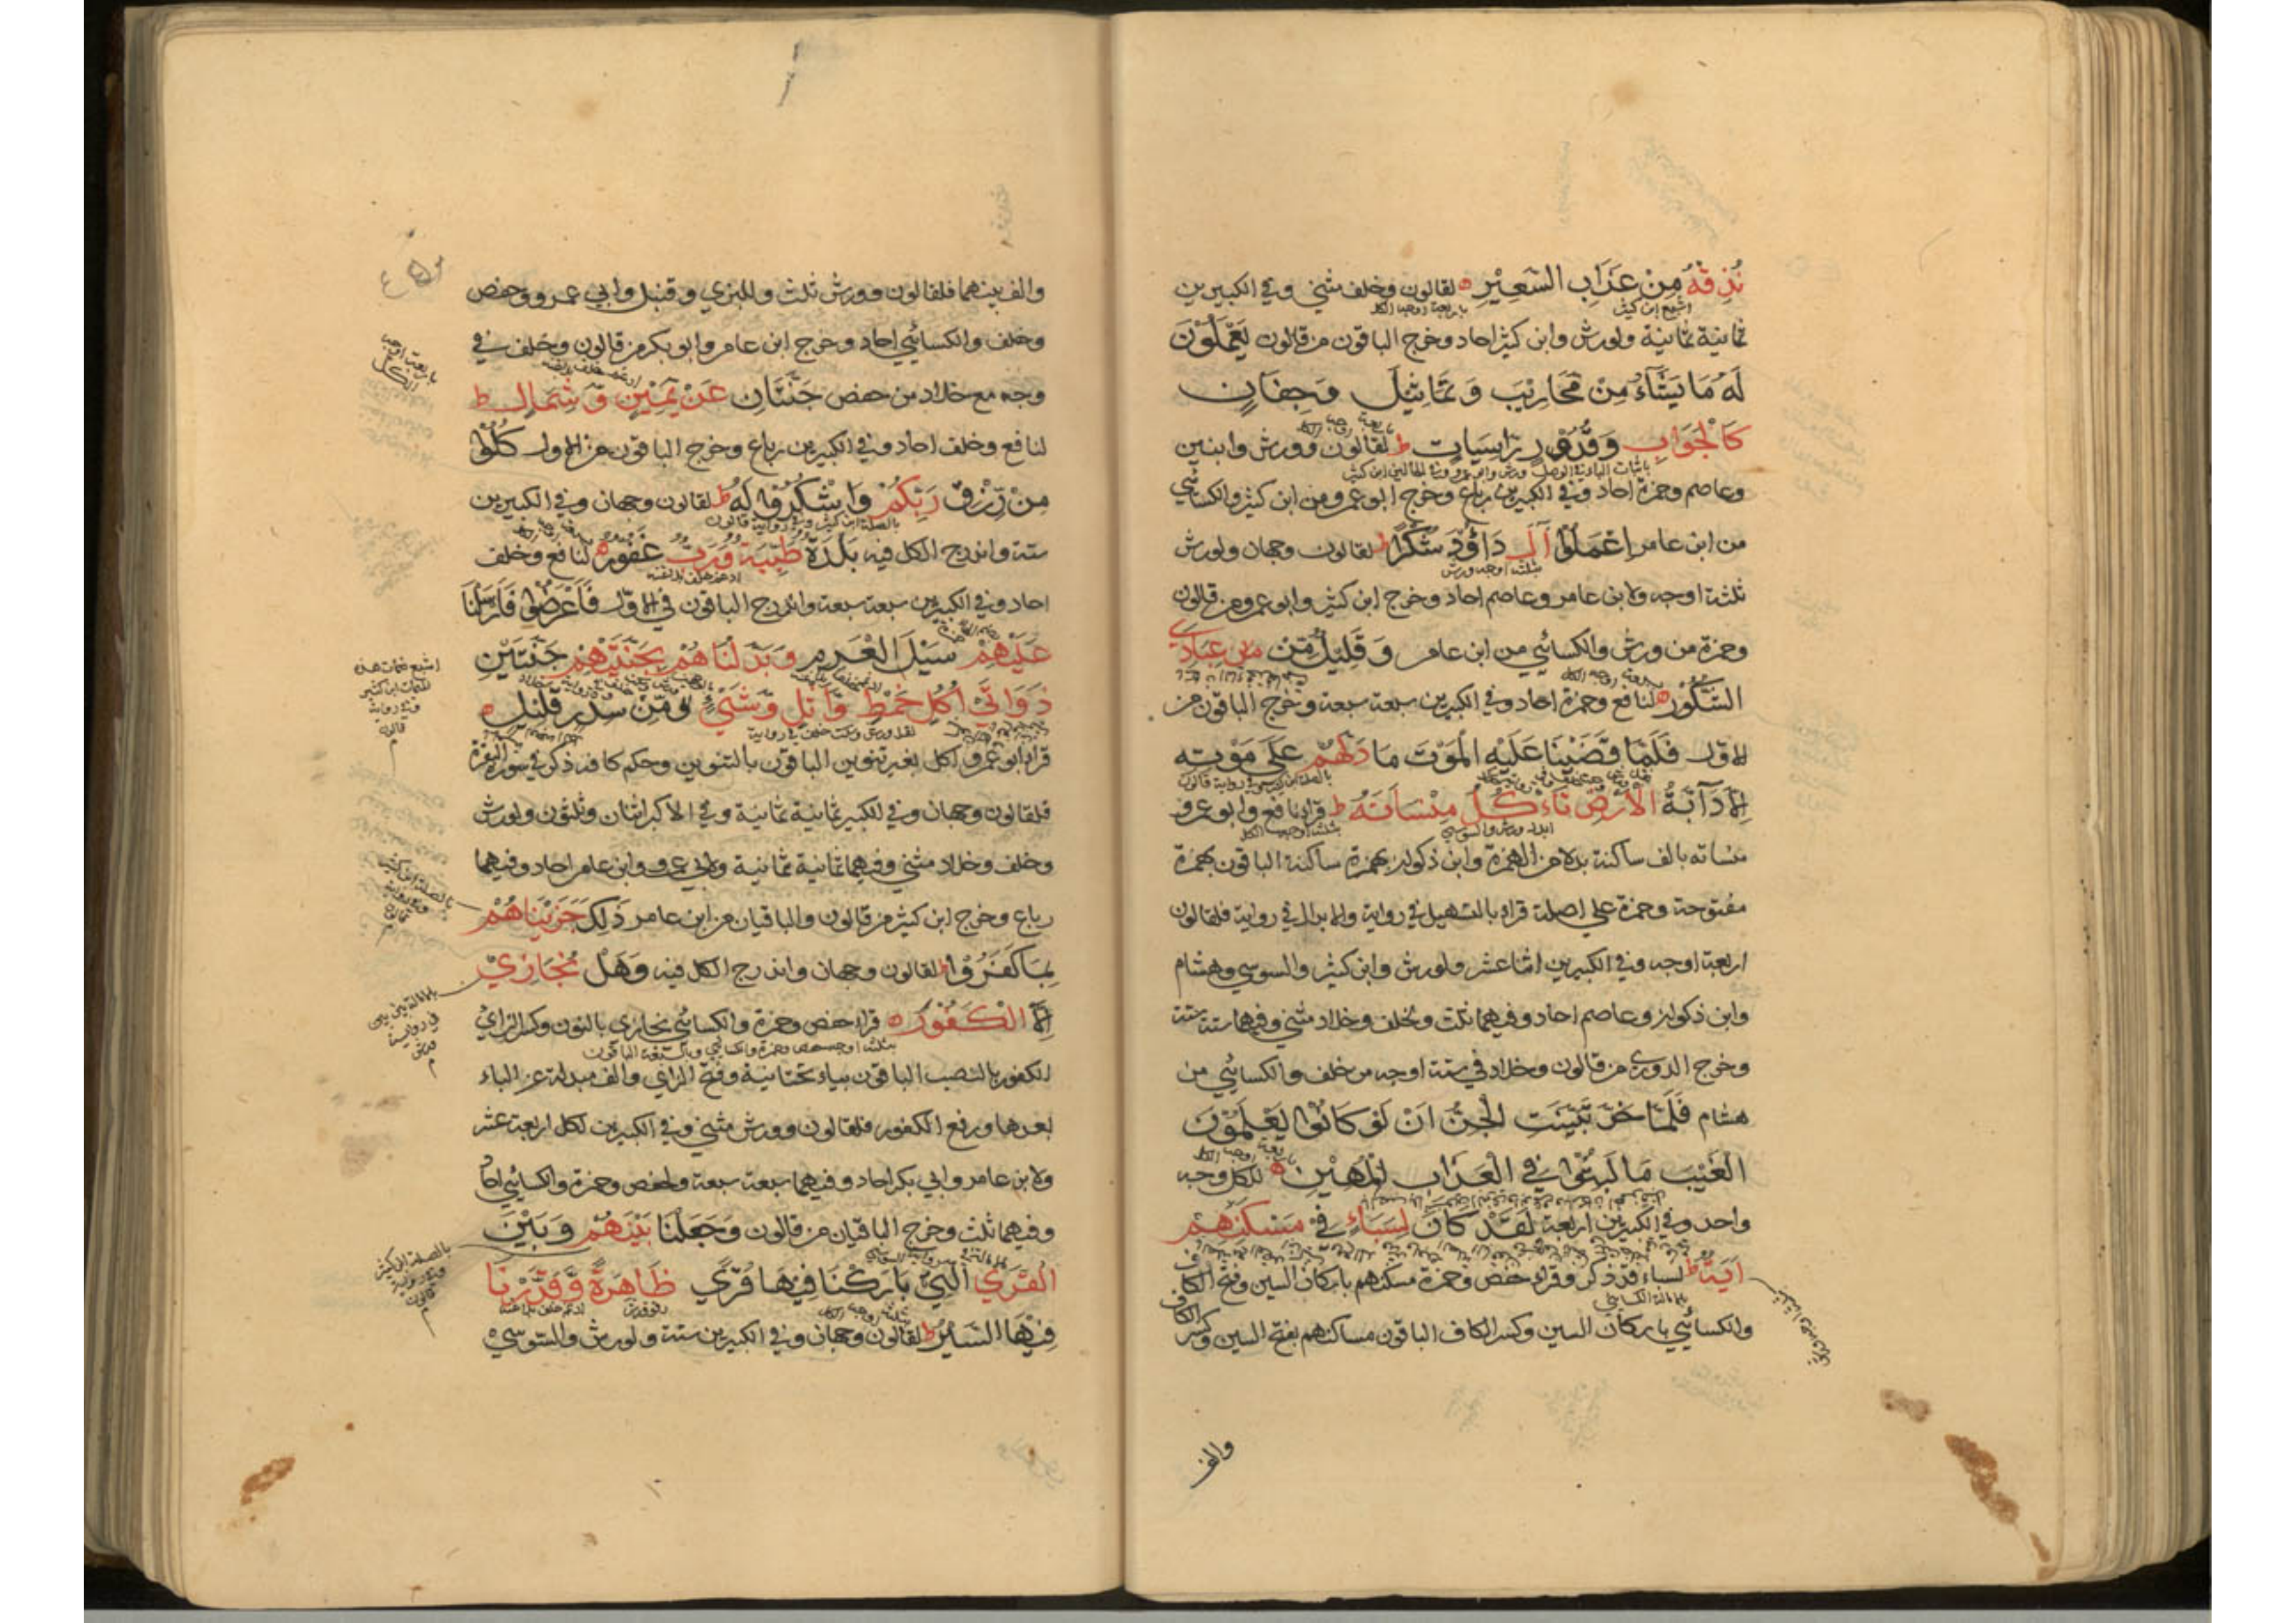 نُذِقْهُ مِنْ عَذَابِ السَّعِيْرِ لقالون وخلف مثني وفي الكبيرين
اشبع ابن كثير
باربعة اوجه الكل
ثمانية ثمانية ولورش وابن كثير احاد وخرج الباقون من قالون يَعْمَلُوْنَ
لَهُ مَا يَشَآءُ مِنْ مَحَارِيْبَ وَتَمَاثِيْلَ وَجِفَانٍ
كَالْجَوَابِ وَقُدُوْرٍ رَّاسِيَاتٍ ط لقالون وورش وابنين
وعاصم وحمزة احاد وفي الكبيرين رباع وخرج ابو عمرو من ابن كثير والكسائي
من ابن عامر اِعْمَلُوْا آلَ دَاؤُدَ شُكْرًا ط لقالون وجهان ولورش
بثلثة اوجه ورش
ثلثة اوجه ولابن عامر وعاصم احاد وخرج ابن كثير وابو عمرو من قالون
وحمزة من ورش والكسائي من ابن عامر وَقَلِيْلٌ مِّنْ عِبَادِيَ
الشَّكُوْرُ لنافع وحمزة احاد وفي الكبيرين سبعة سبعة وخرج الباقون من
الاول فَلَمَّا قَضَيْنَا عَلَيْهِ الْمَوْتَ مَا دَلَّهُمْ عَلَي مَوْتِهِ
اِلَّا دَآبَّةُ الْاَرْضِ تَاْكُلُ مِنْسَاَتَهُ ط قراء نافع وابو عمرو
ابدل ورش والسوسي
بثلثة اوجه الكل
منساته بالف ساكنة بدلا من الهمزة وابن ذكوان بهمزة ساكنة الباقون بهمزة
مفتوحة وحمزة علي اصله قراء بالتسهيل في رواية والابدال في رواية فلقالون
اربعة اوجه وفي الكبيرين اثنا عشر ولورش وابن كثير والسوسي وهشام
وابن ذكوان وعاصم احاد وفيهما ثلث وخلف وخلاد مثني وفيهما ستة ستة
وخرج الدوري من قالون وخلاد في ستة اوجه من خلف والكسائي من
هشام فَلَمَّا خَرَّ تَبَيَّنَتِ الْجِنُّ اَنْ لَوْ كَانُوْا يَعْلَمُوْنَ
الْغَيْبَ مَا لَبِثُوْا فِي الْعَذَابِ الْمُهِيْنِ لكل وجه
واحد وفي الكبيرين اربعة لَقَدْ كَانَ لِسَبَاءٍ فِيْ مَسْكَنِهِمْ
اٰيَةٌ ط لسباء قد ذكر وقراء حفص وحمزة مسكنهم باسكان السين وفتح الكاف
بامالة الكسائي
والكسائي باسكان السين وكسر الكاف الباقون مساكنهم بفتح السين وكسر الكاف
والف
والف بينهما فلقالون وورش ثلث وللبزي وقنبل وابي عمرو وحفص
وخلف والكسائي احاد وخرج ابن عامر وابو بكر من قالون وخلف في
باربعة اوجه الكل
وجه مع خلاد من حفص جَنَّتَانِ عَنْ يَّمِيْنٍ وَّشِمَالٍ ط
لنافع وخلف احاد وفي الكبيرين رباع وخرج الباقون من الاول كُلُوْا
مِنْ رِّزْقِ رَبِّكُمْ وَاشْكُرُوْا لَهُ ط لقالون وجهان وفي الكبيرين
بالصلة ابن كثير وفي رواية قالون
ستة واندرج الكل فيه بَلْدَةٌ طَيِّبَةٌ وَّرَبٌّ غَفُوْرٌ لنافع وخلف
ادغم خلف بلا غنة
احاد وفي الكبيرين سبعة سبعة واندرج الباقون في الاول فَاَعْرَضُوْا فَاَرْسَلْنَا
عَلَيْهِمْ سَيْلَ الْعَرِمِ وَبَدَّلْنَاهُمْ بِجَنَّتَيْهِمْ جَنَّتَيْنِ
ذَوَاتَيْ اُكُلٍ خَمْطٍ وَّاَثْلٍ وَّشَيْءٍ مِّنْ سِدْرٍ قَلِيْلٍ
قراء ابو عمرو اكل بغير تنوين الباقون بالتنوين وحكم كاف ذكر في سورة البقرة
فلقالون وجهان وفي الكبير ثمانية ثمانية وفي الاكبر اثنان وثلثون ولورش
وخلف وخلاد مثني وفيهما ثمانية ثمانية ولابي عمرو وابن عامر احاد وفيهما
رباع وخرج ابن كثير من قالون والباقيان من ابن عامر ذٰلِكَ جَزَيْنَاهُمْ
بِمَا كَفَرُوْا ط لقالون وجهان واندرج الكل فيه وَهَلْ نُجَازِيْ
اِلَّا الْكَفُوْرَ قراء حفص وحمزة والكسائي نجازي بالنون وكسر الزاي
الكفور بالنصب الباقون بياء تحتانية وفتح الزاي والف مبدلة عن الياء
بعدها ورفع الكفور فلقالون وورش مثني وفي الكبيرين لكل اربعة عشر
ولابن عامر وابي بكر احاد وفيهما سبعة سبعة ولحفص وحمزة والكسائي احاد
وفيهما ثلث وخرج الباقيان من قالون وَجَعَلْنَا بَيْنَهُمْ وَبَيْنَ
الْقُرَي الَّتِيْ بَارَكْنَا فِيْهَا قُرًي ظَاهِرَةً وَّقَدَّرْنَا
فِيْهَا السَّيْرَ ط لقالون وجهان وفي الكبيرين ستة ولورش والسوسي
اشبع ضمات هذه
الكلمات ابن كثير
وفي رواية
قالون
بالصلة ابن كثير
وفي رواية
قالون
بالصلة ابن كثير
وفي رواية
قالون